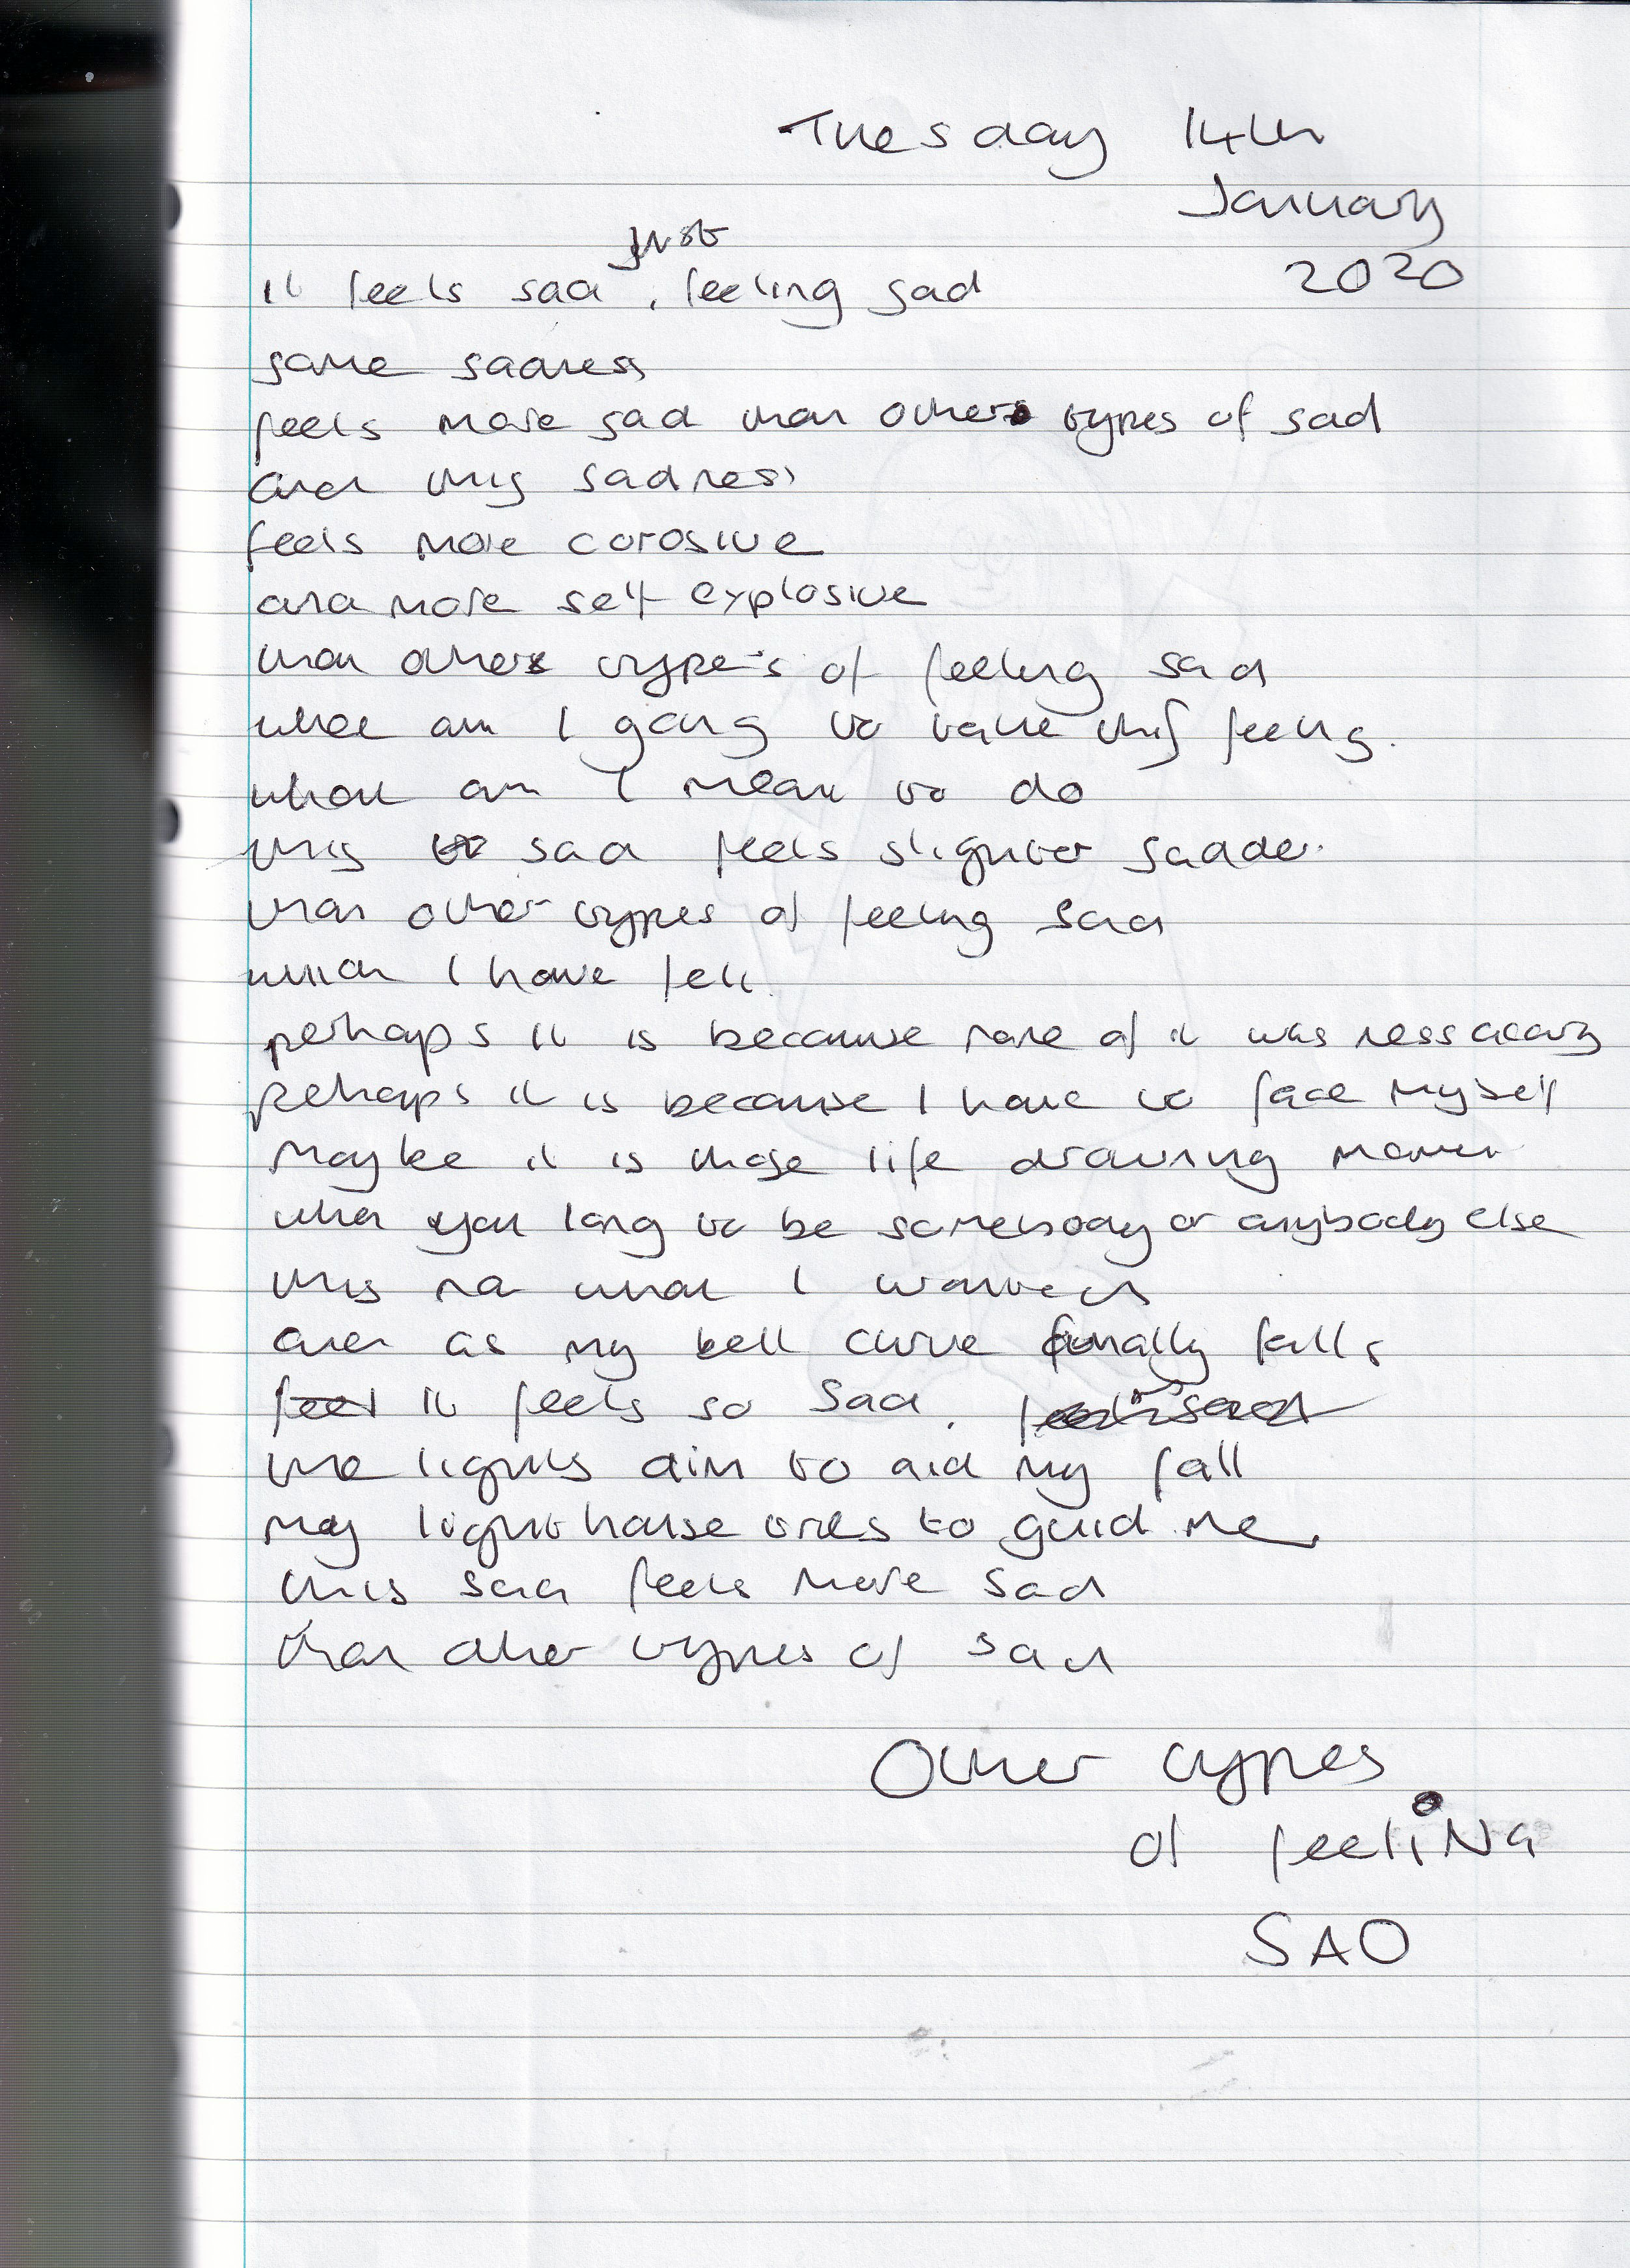 Tuesday 14th
January
2020
just
it feels sad, feeling sad
some sadness
feels more sad than other types of sad
and this sadness
feels more corosive
and more self explosive
than other type's of feeling sad
what am I going to take this feeling.
what am I meant to do
this sad feels slighter sadder.
than other types of feeling sad
which I have felt.
perhaps it is because none of it was nessacary
perhaps it is because I have to face myself
Maybe it is those life drawing moment
when you long to be somebody or anybody else
this not what I wanted
and as my bell curve finally falls
feel it feels so sad.
the lights dim to aid my fall
my lighthouse tries to guid me.
this sad feels more sad
than other types of sad
Other types
of feeliNG
SAD